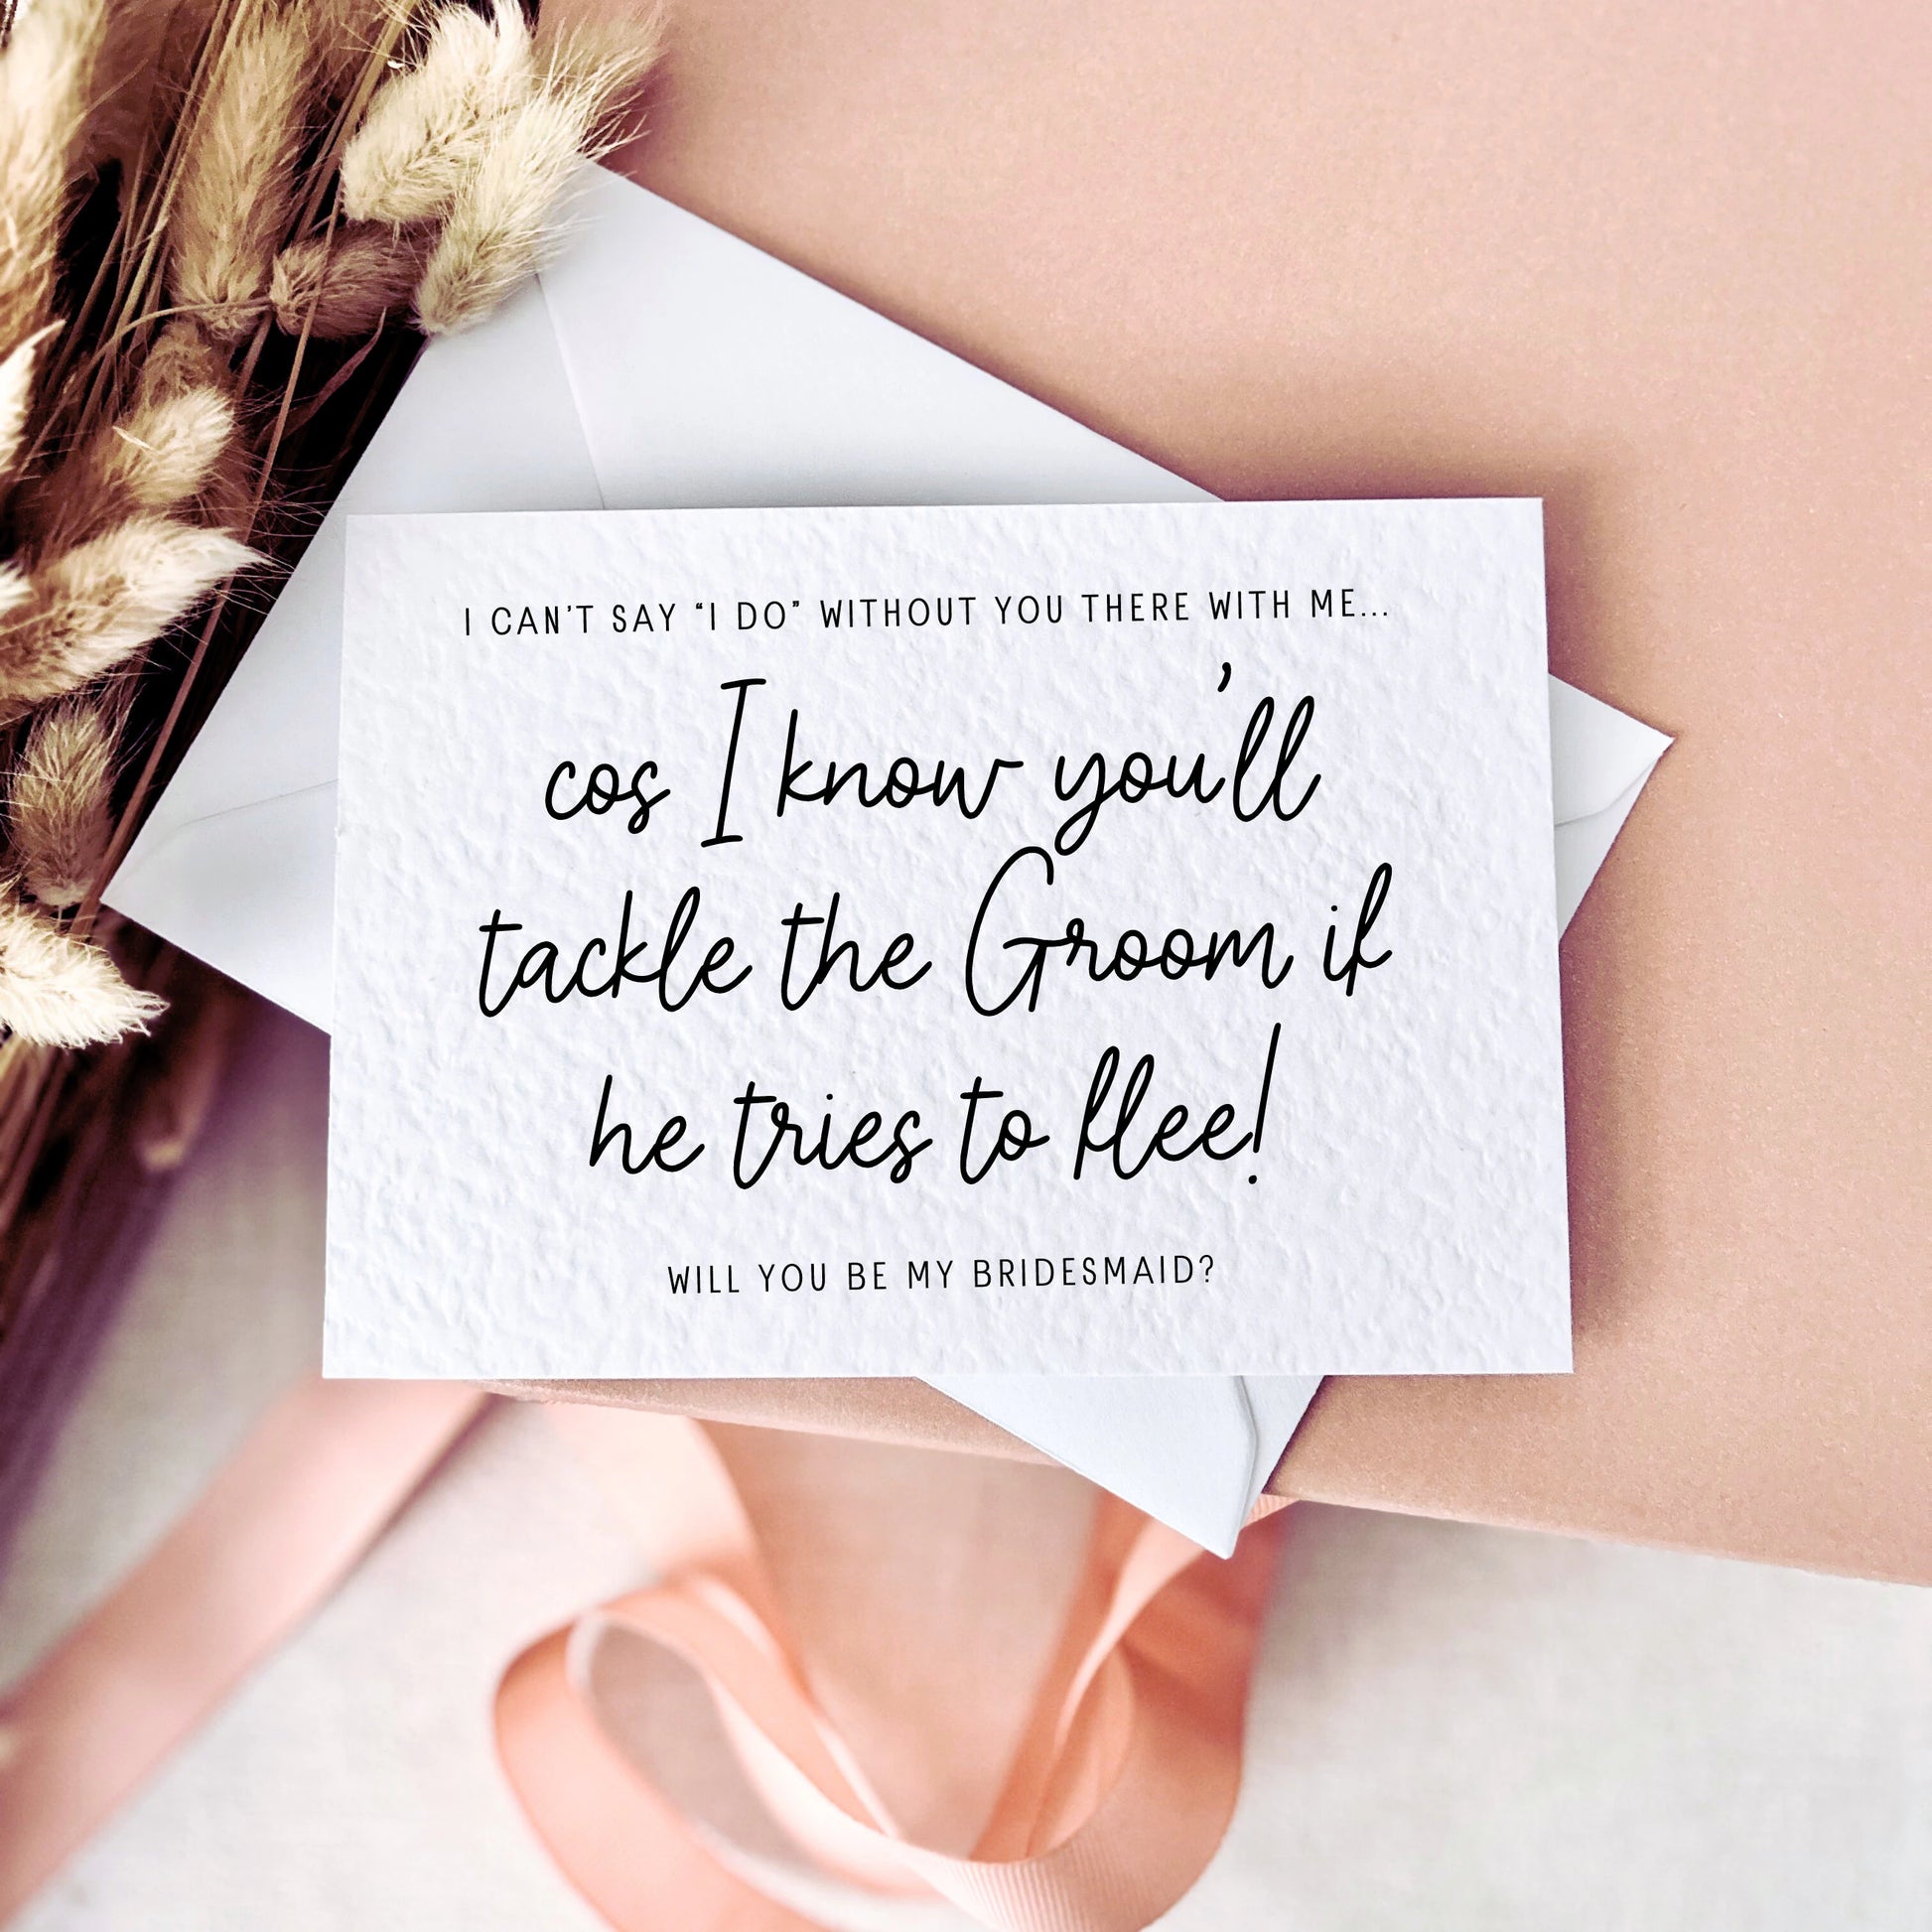 I CAN'T SAY “I DO” WITHOUT YOU THERE WITH ME...
cos I know you'll
tackle the Groom if
he tries to flee!
WILL YOU BE MY BRIDESMAID?